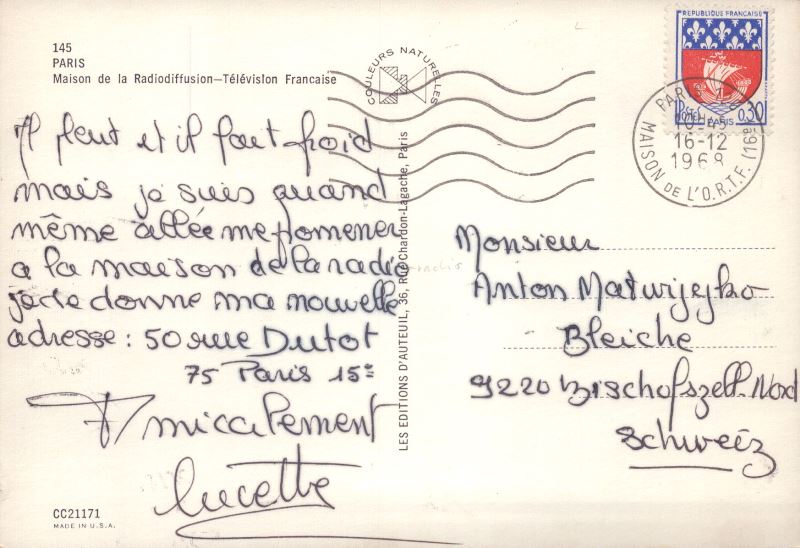 145
PARIS
Maison de la Radiodiffusion—Télévision Francaise
Il pleut et il fait froid
mais je suis quand
même allée me promener
a la maison de la radio
je te donne ma nouvelle
adresse : 50 rue Dutot
75 Paris 15e
Amicalement
Lucette
CC21171
MADE IN U.S.A.
LES EDITIONS D'AUTEUIL, 36, Rue Chardon-Lagache, Paris
COULEURS NATURELLES
REPUBLIQUE FRANCAISE
POSTES PARIS 0,30
PARIS
10H45
16-12
1968
MAISON DE L'O.R.T.F. (16e)
Monsieur
Anton Maturjejko
Bleiche
9220 Bischofszell-Nord
Schweiz